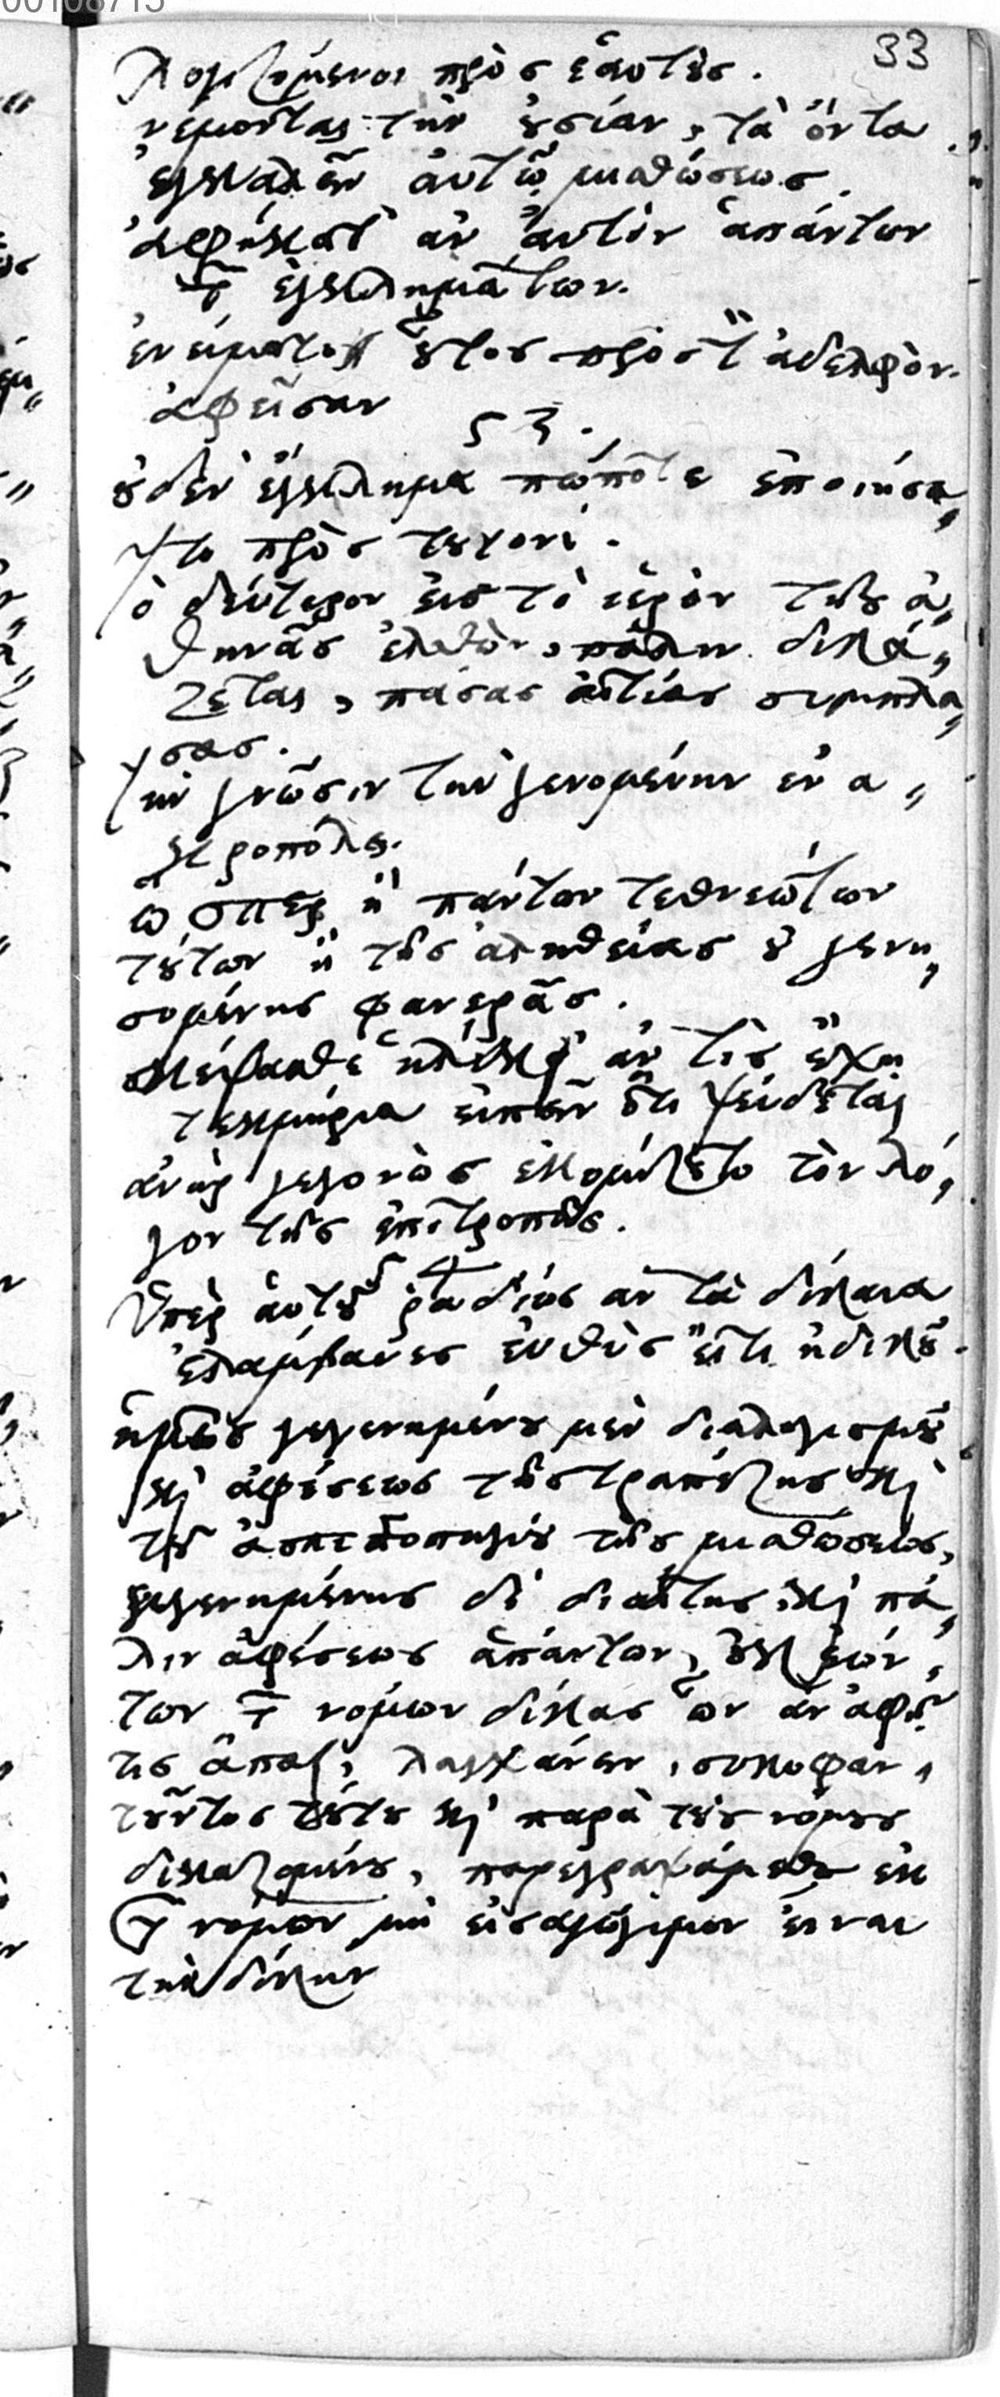 00108713
33
λογιζόμενοι πρὸς ἑαυτούς.
νέμονται τὴν οὐσίαν, τὰ ὄντα
ἐγκαλεῖν αὐτῷ μισθώσεως.
ἀφήκατ' ἂν αὐτὸν ἁπάντων
τῶν ἐγκλημάτων.
ἐνείματο οὗτος πρὸς τὸν ἀδελφὸν.
ἀφεῖσαν
οὐδὲν ἔγκλημα πώποτε ἐποιήσα
το πρὸς
τὸ δεύτερον εἰς τὸ ἱερὸν τῆς ἀ
θηνᾶς ἐλθὼν, πάλιν δικά
ζεται, πάσας αἰτίας συμπλά
σας.
τὴν γνῶσιν τὴν γενομένην ἐν ἀ
κροπόλει.
ὥσπερ ἢ πάντων τεθνεώτων
τούτων ἢ τῆς ἀληθείας οὐ γενη
σομένης φανερᾶς.
σκέψασθε ἂν τις ἔχῃ
τεκμήρια εἰπεῖν ὅτι ψεύδεται
ἀνὴρ γεγονὼς ἐκομίζετο τὸν λό
γον τῆς ἐπιτροπῆς.
ὑπὲρ αὐτοῦ ῥᾳδίως ἂν τὰ δίκαια
ἐλάμβανες εὐθὺς εἴ τι ἠδικοῦ.
ἡμεῖς γεγενημένου μὲν διαλογισμοῦ
καὶ ἀφέσεως τῆς τραπέζης καὶ
τοῦ ἀσπιδοπηγίου τῆς μισθώσεως,
γεγενημένης δὲ διαίτης, καὶ πά
λιν ἀφέσεως ἁπάντων, οὐκ ἐών
των τῶν νόμων δίκας ὧν ἂν ἀφῇ
τις ἅπαξ, λαγχάνειν, συκοφαν
τοῦντος τούτου καὶ παρὰ τοὺς νόμους
δικαζομένου, παρεγραψάμεθα ἐκ
τῶν νόμων μὴ εἰσαγώγιμον εἶναι
τὴν δίκην